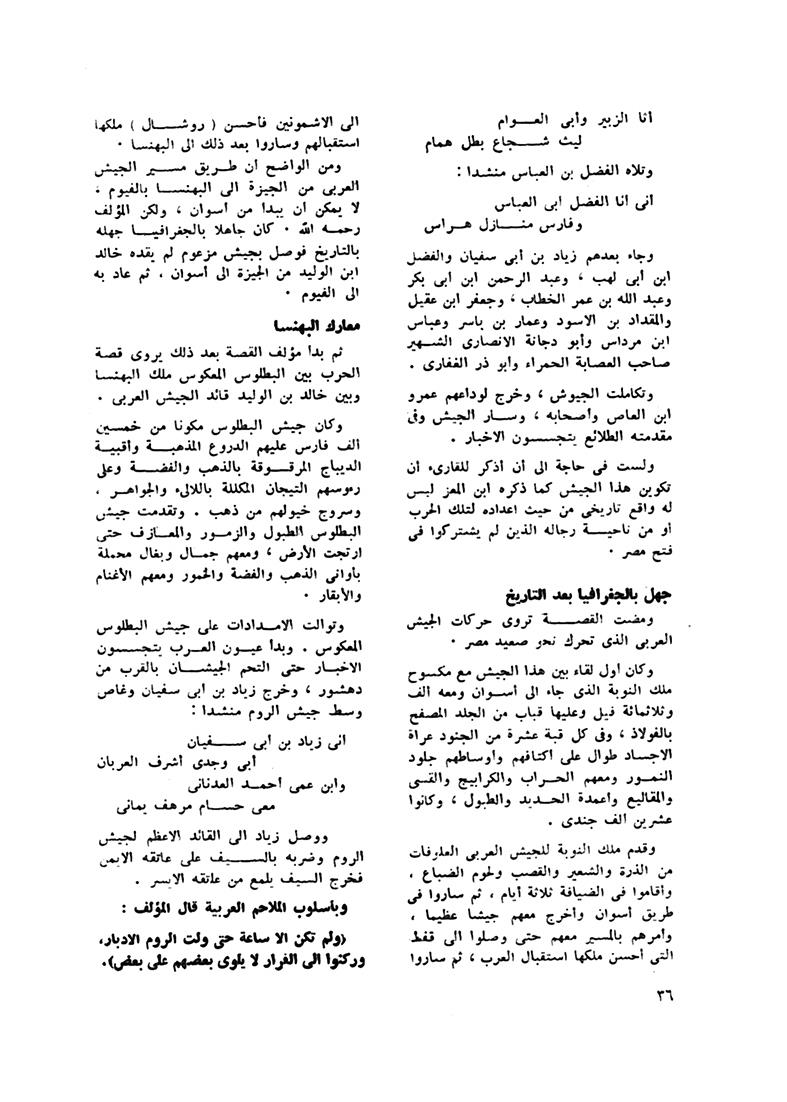 أنا الزبير وأبى العـــوام
ليث شـــجاع بطل همام
وتلاه الفضل بن العباس منشدا :
انى أنا الفضل ابى العباس
وفارس منـــازل هـراس
وجاء بعدهم زياد بن أبى سفيان والفضل
ابن أبى لهب ، وعبد الرحمن ابن أبى بكر
وعبد الله بن عمر الخطاب ، وجعفر ابن عقيل
والمقداد بن الاسود وعمار بن ياسر وعباس
ابن مرداس وأبو دجانة الانصارى الشـهير
صاحب العصابة الحمراء وأبو ذر الغفارى .
وتكاملت الجيوش ، وخرج لوداعهم عمرو
ابن العاص وأصحابه ، وسـار الجيش وفى
مقدمته الطلائع يتجسسون الاخبار .
ولست فى حاجة الى أن أذكر للقارىء أن
تكوين هذا الجيش كما ذكره ابن المعز ليس
له واقع تاريخى من حيث اعداده لتلك الحرب
أو من ناحيـــة رجاله الذين لم يشتركوا فى
فتح مصر .
جهل بالجغرافيا بعد التاريخ
ومضت القصـــة تروى حركات الجيش
العربى الذى تحرك نحو صعيد مصر .
وكان أول لقاء بين هذا الجيش مع مكسوح
ملك النوبة الذى جاء الى أسـوان ومعه ألف
وثلاثمائة فيل وعليها قباب من الجلد المصفح
بالفولاذ ، وفى كل قبة عشرة من الجنود عراة
الاجساد طوال على أكتافهم وأوساطهم جلود
النمـور ومعهم الحـراب والكرابيج والقسى
والمقاليع وأعمدة الحـديد والطبول ، وكانوا
عشرين الف جندى .
وقدم ملك النوبة للجيش العربى العلوفات
من الذرة والشعير والقصب ولحوم الضباع ،
وأقاموا فى الضيافة ثلاثة أيام ، ثم ساروا فى
طريق أسوان وأخرج معهم جيشا عظيما ،
وأمرهم بالمسير معهم حتى وصلوا الى قفط
التى أحسن ملكها استقبال العرب ، ثم ساروا
الى الاشمونين فأحسن ( روشـــال ) ملكها
استقبالهم وساروا بعد ذلك الى البهنسا .
ومن الواضح أن طـريق مسـير الجيش
العربى من الجيزة الى البهنســا بالفيوم ،
لا يمكن أن يبدأ من أسوان ، ولكن المؤلف
رحمـه الله . كان جاهلا بالجغرافيــا جهله
بالتاريخ فوصل بجيش مزعوم لم يقده خالد
ابن الوليد من الجيزة الى أسوان ، ثم عاد به
الى الفيوم .
معارك البهنسا
ثم بدأ مؤلف القصة بعد ذلك يروى قصة
الحرب بين البطلوس المعكوس ملك البهنسـا
وبين خالد بن الوليد قائد الجيش العربى .
وكان جيش البطلوس مكونا من خمسـين
ألف فارس عليهم الدروع المذهبـــة وأقبية
الديباج المرقــوقة بالذهب والفضــة وعلى
رءوسهم التيجان المكللة باللالىء والجواهـر ،
وسروج خيولهم من ذهب . وتقدمت جيش
البطلوس الطبول والزمـور والمعـازف حتى
ارتجت الأرض ، ومعهم جمـال وبغال محملة
بأوانى الذهب والفضة والخمور ومعهم الأغنام
والأبقار .
وتوالت الامـدادات على جيش البطلوس
المعكوس . وبدأ عيـون العرب يتجسسـون
الاخبار حتى التحم الجيشــان بالقرب من
دهشور ، وخرج زياد بن ابى سفيان وغاص
وسط جيش الروم منشدا :
انى زياد بن أبى ســـفيان
أبى وجدى أشرف العربان
وابن عمى أحمـد العدنانى
معى حسـام مرهف يمانى
ووصل زياد الى القائد الاعظم لجيش
الروم وضربه بالســـيف على عاتقه الايمن
فخرج السيف يلمع من عاتقه الايسر .
وبأسلوب الملاحم العربية قال المؤلف :
(ولم تكن الا ساعة حتى ولت الروم الادبار،
وركنوا الى الفرار لا يلوى بعضهم على بعض).
٣٦